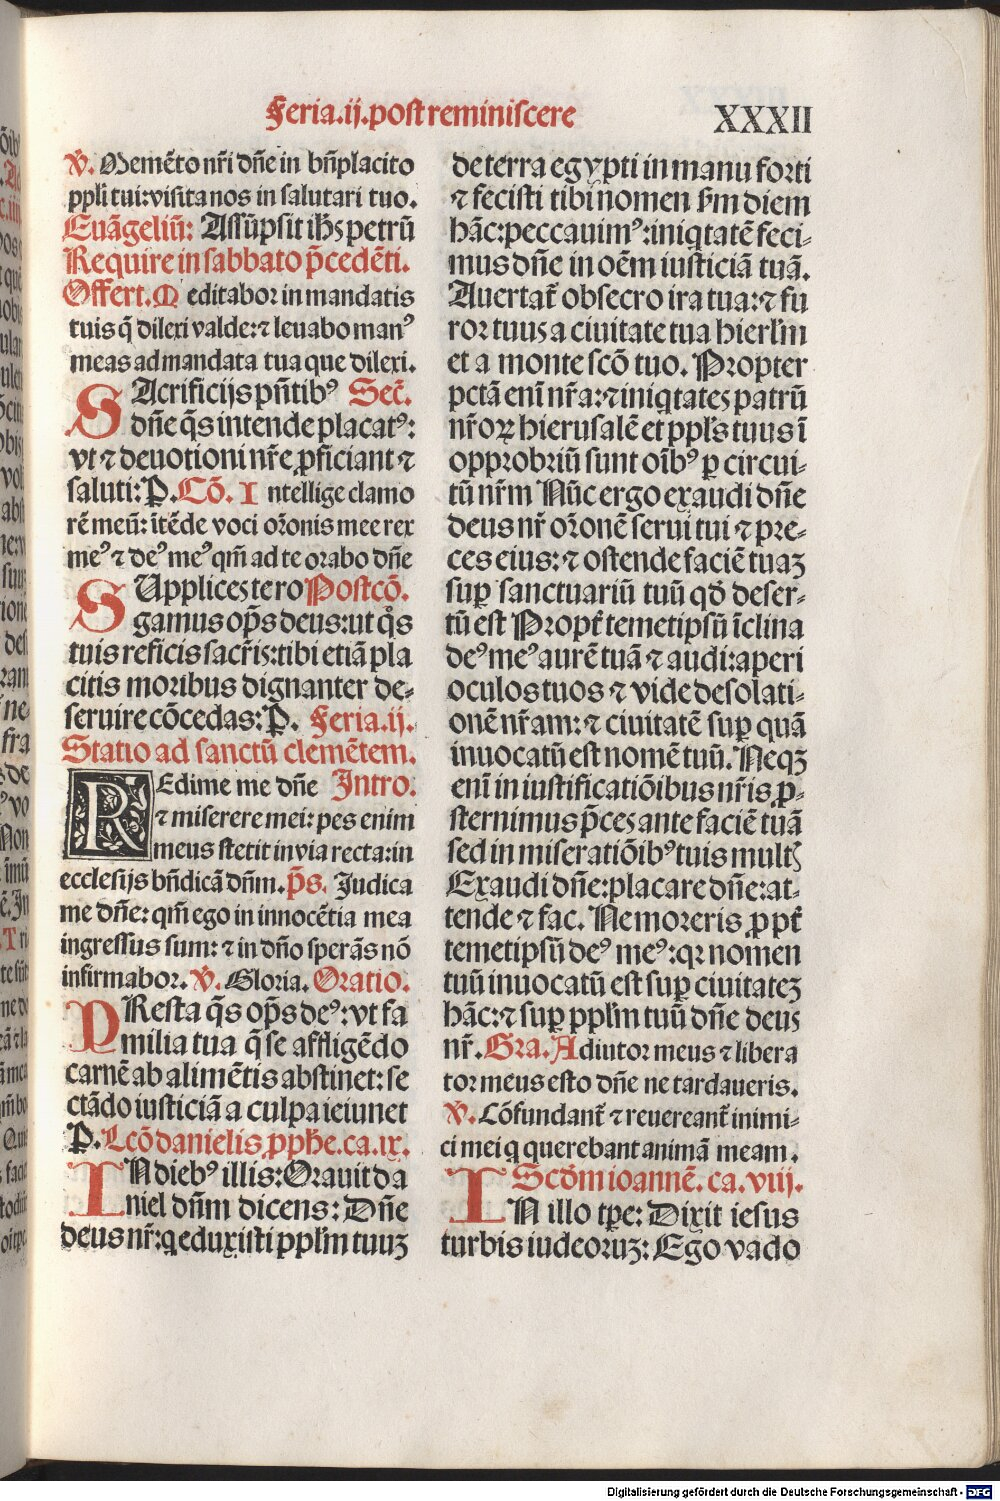 Feria.ij.post reminiscere
XXXII
V̄. Memēto nr̄i dn̄e in bn̄placito
ppl̄i tui: visita nos in salutari tuo.
Euāgeliū: Assūpsit ih̄s petrū
Require in sabbato p̄cedēti.
Offert. M editabor in mandatis
tuis q̄ dilexi valde: ⁊ leuabo manꝰ
meas ad mandata tua que dilexi.
SAcrificijs pn̄tibꝰ Sec̄.
dn̄e q̄s intende placatꝰ:
vt ⁊ deuotioni nr̄e ꝓficiant ⁊
saluti: P. Cō. I ntellige clamo
rē meū: ītēde voci or̄onis mee rex
meꝰ ⁊ deꝰ meꝰ qm̄ ad te orabo dn̄e
SUpplices te ro Postcō.
gamus op̄s deus: ut qͦs
tuis reficis sacr̄is: tibi etiā pla
citis moribus dignanter de-
seruire cōcedas: P. Feria.ij.
Statio ad sanctū clemētem.
REdime me dn̄e Intro.
⁊ miserere mei: pes enim
meus stetit in via recta: in
ecclesijs bn̄dicā dn̄m. p̄s. Judica
me dn̄e: qm̄ ego in innocētia mea
ingressus sum: ⁊ in dn̄o sperās nō
infirmabor. V̄. Gloria. Oratio.
PResta q̄s op̄s deꝰ: vt fa
milia tua q̄ se affligēdo
carnē ab alimētis abstinet: se
ctādo iusticiā a culpa ieiunet
P. Lcō danielis ꝓph̄e. ca. ix.
IN diebꝰ illis: Orauit da
niel dn̄m dicens: Dn̄e
deus nr̄: q eduxisti ppl̄m tuuꝫ
de terra egypti in manu forti
⁊ fecisti tibi nomen s̄m diem
hāc: peccauimꝰ: iniqtatē feci-
mus dn̄e in oēm iusticiā tuā.
Auertat̄ obsecro ira tua: ⁊ fu
ror tuus a ciuitate tua hierl̄m
et a monte scō tuo. Propter
pctā enī nr̄a: ⁊ iniqtates patrū
nr̄oꝝ hierusalē et ppl̄s tuus ī
opprobriū sunt oībꝰ ꝑ circui-
tū nr̄m Nūc ergo exaudi dn̄e
deus nr̄ or̄onē serui tui ⁊ pre-
ces eius: ⁊ ostende faciē tuaꝫ
suꝑ sanctuariū tuū qd̄ deser-
tū est Propt̄ temetipsū īclina
deꝰ meꝰ aurē tuā ⁊ audi: aperi
oculos tuos ⁊ vide desolati-
onē nr̄am: ⁊ ciuitatē suꝑ quā
inuocatū est nomē tuū. Neqꝫ
enī in iustificatiōibus nr̄is ꝓ-
sternimus p̄ces ante faciē tuā
sed in miseratiōibꝰ tuis mult̄
Exaudi dn̄e: placare dn̄e: at-
tende ⁊ fac. Ne moreris ꝓpt̄
temetipsū deꝰ meꝰ: qr nomen
tuū inuocatū est suꝑ ciuitateꝫ
hāc: ⁊ suꝑ ppl̄m tuū dn̄e deus
nr̄. Gra. Adiutor meus ⁊ libera
tor meus esto dn̄e ne tardaueris.
V̄. Cōfundant̄ ⁊ reuereant̄ inimi-
ci mei q querebant animā meam.
Scd̄m ioannē. ca. viij.
IN illo tꝑe: Dixit iesus
turbis iudeoruꝫ: Ego vado
Digitalisierung gefördert durch die Deutsche Forschungsgemeinschaft - DFG